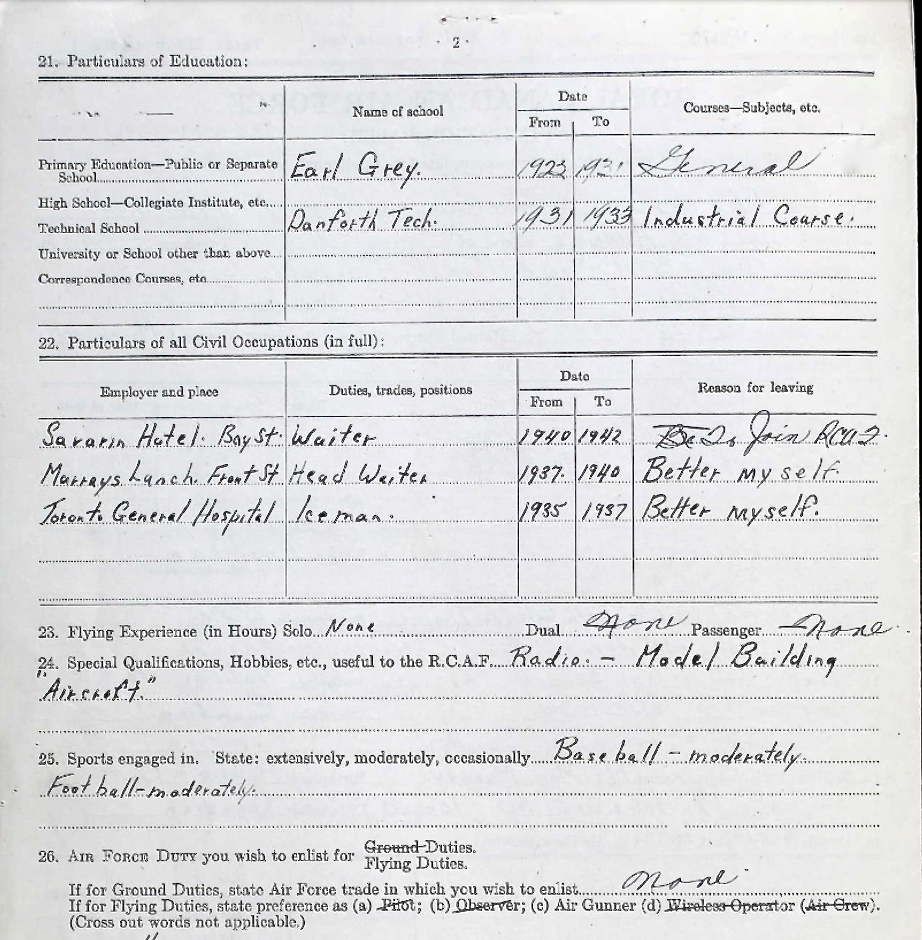 2
21. Particulars of Education:
Name of school
Date
From To
Courses—Subjects, etc.
Primary Education—Public or Separate
School Earl Grey. 1923 1931 General
High School—Collegiate Institute, etc.
Technical School Danforth Tech. 1931 1933 Industrial Course.
University or School other than above
Correspondence Courses, etc.
22. Particulars of all Civil Occupations (in full):
Employer and place Duties, trades, positions
Date
From To
Reason for leaving
Savarin Hotel. Bay St. Waiter 1940 1942 To Join RCAF.
Murrays Lunch. Front St Head Waiter 1937. 1940 Better myself.
Toronto General Hospital Iceman. 1935 1937 Better myself.
23. Flying Experience (in Hours) Solo None Dual None Passenger None
24. Special Qualifications, Hobbies, etc., useful to the R.C.A.F. Radio. - Model Building
"Aircraft."
25. Sports engaged in. State: extensively, moderately, occasionally Baseball - moderately.
Football - moderately.
26. AIR FORCE DUTY you wish to enlist for Ground Duties.
Flying Duties.
If for Ground Duties, state Air Force trade in which you wish to enlist. None
If for Flying Duties, state preference as (a) Pilot; (b) Observer; (c) Air Gunner (d) Wireless Operator (Air Crew).
(Cross out words not applicable.)